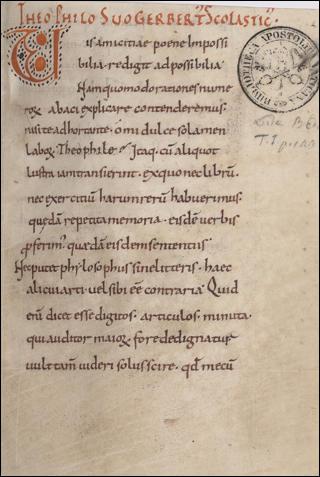 THEOPHILO SUO GERBERTꝰ SCOLASTICꝰ.
Uis amicitiae poene impossi
bilia redigit ad possibilia.
Nam quomodo rationes nume
roꝝ abaci explicare contenderemus.
nisi te adhortante. o mi dulce solamen
laboꝝ Theophile? Itaq; cū aliquot
lustra iam transierint. ex quo nec librū.
nec exercitiū harum rerū habuerimus.
quędā repetita memoria. eisdē uerbis
ꝓferimꝰ. quędā eisdem sententiis
Nec putet phylosophus sine litteris. haec
alicui arti. uel sibi eē contraria. Quid
enī dicet esse digitos. articulos. minuta.
qui auditor maioꝝ fore dedignatur?
uult tam̄ uideri solus scire. qđ mecū
BIBLIOTHECA APOSTOLICA VATICANA